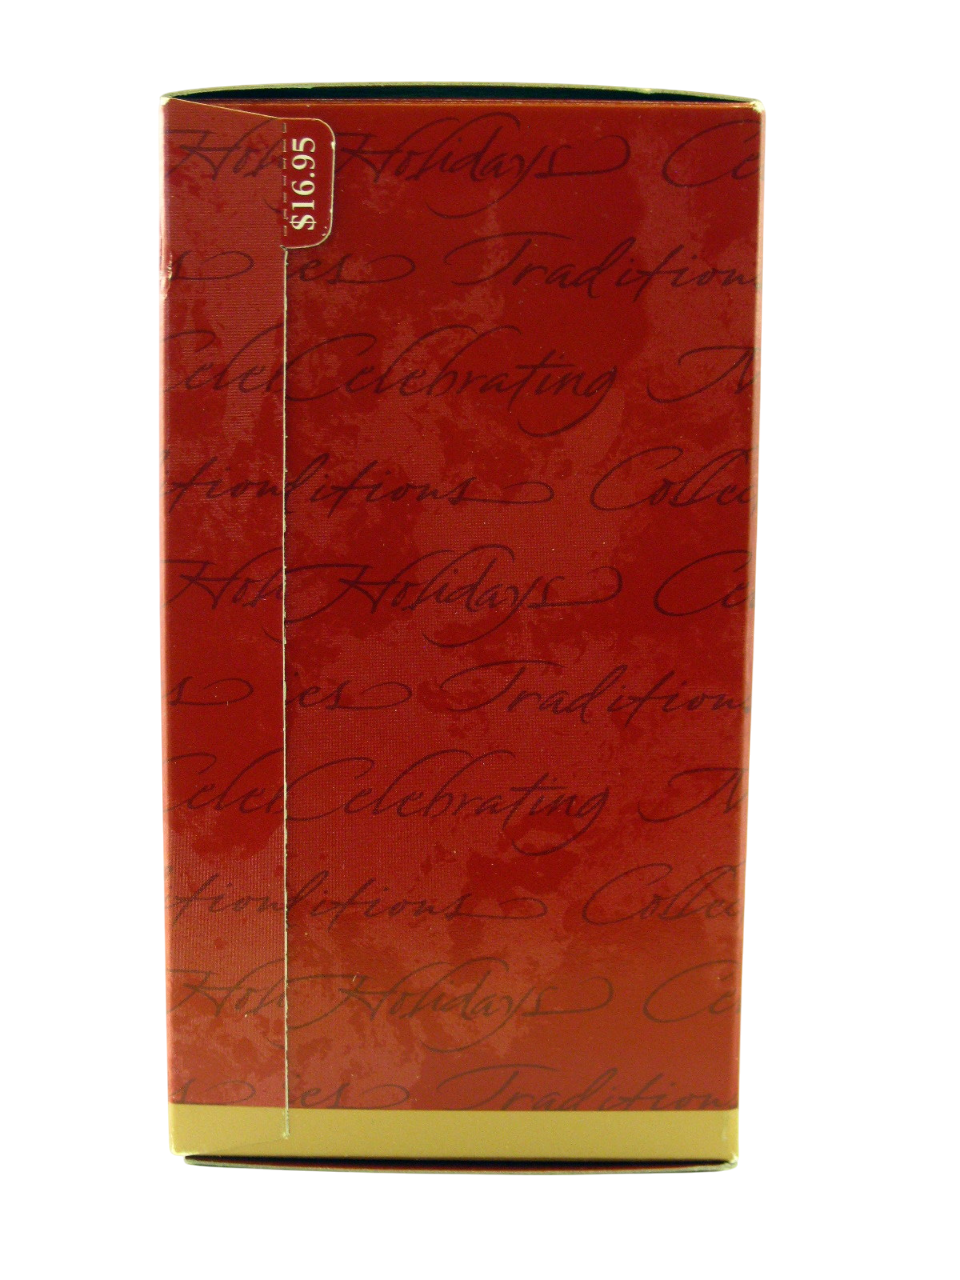 $16.95
Holi Holidays Ce
s ies Tradition
Cele Celebrating M
tion ditions Collec
Holi Holidays Ce
s ies Tradition
Cele Celebrating M
tion ditions Collec
Holi Holidays Ce
s ies Tradition